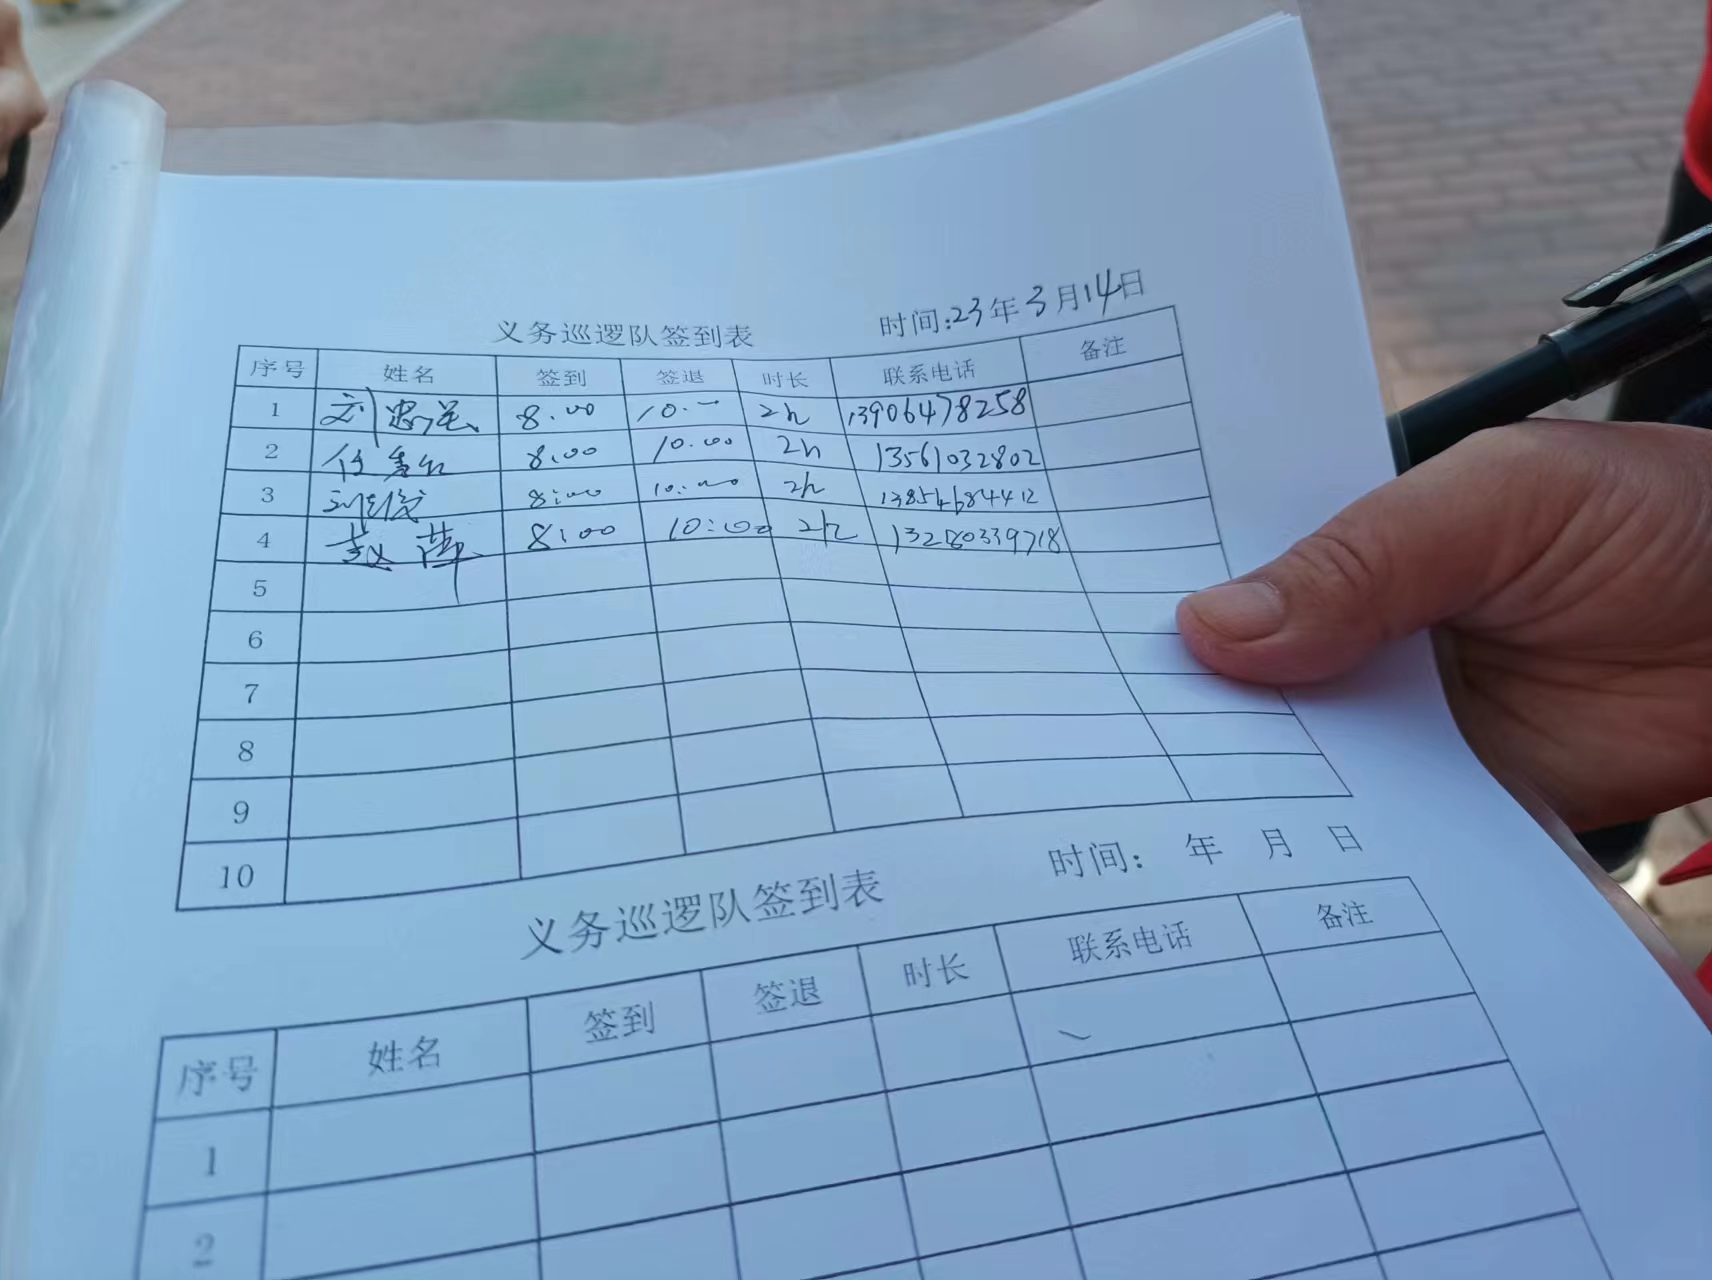 义务巡逻队签到表 时间:23年3月14日
序号 姓名 签到 签退 时长 联系电话 备注
1 刘忠 8:00 10. 2h 13906478258
2 任 8:00 10:00 2h 13561032802
3 刘 8:00 10:00 2h 13854684412
4 赵萍 8:00 10:00 2h 13280339718
5
6
7
8
9
10
义务巡逻队签到表 时间： 年 月 日
序号 姓名 签到 签退 时长 联系电话 备注
1
2